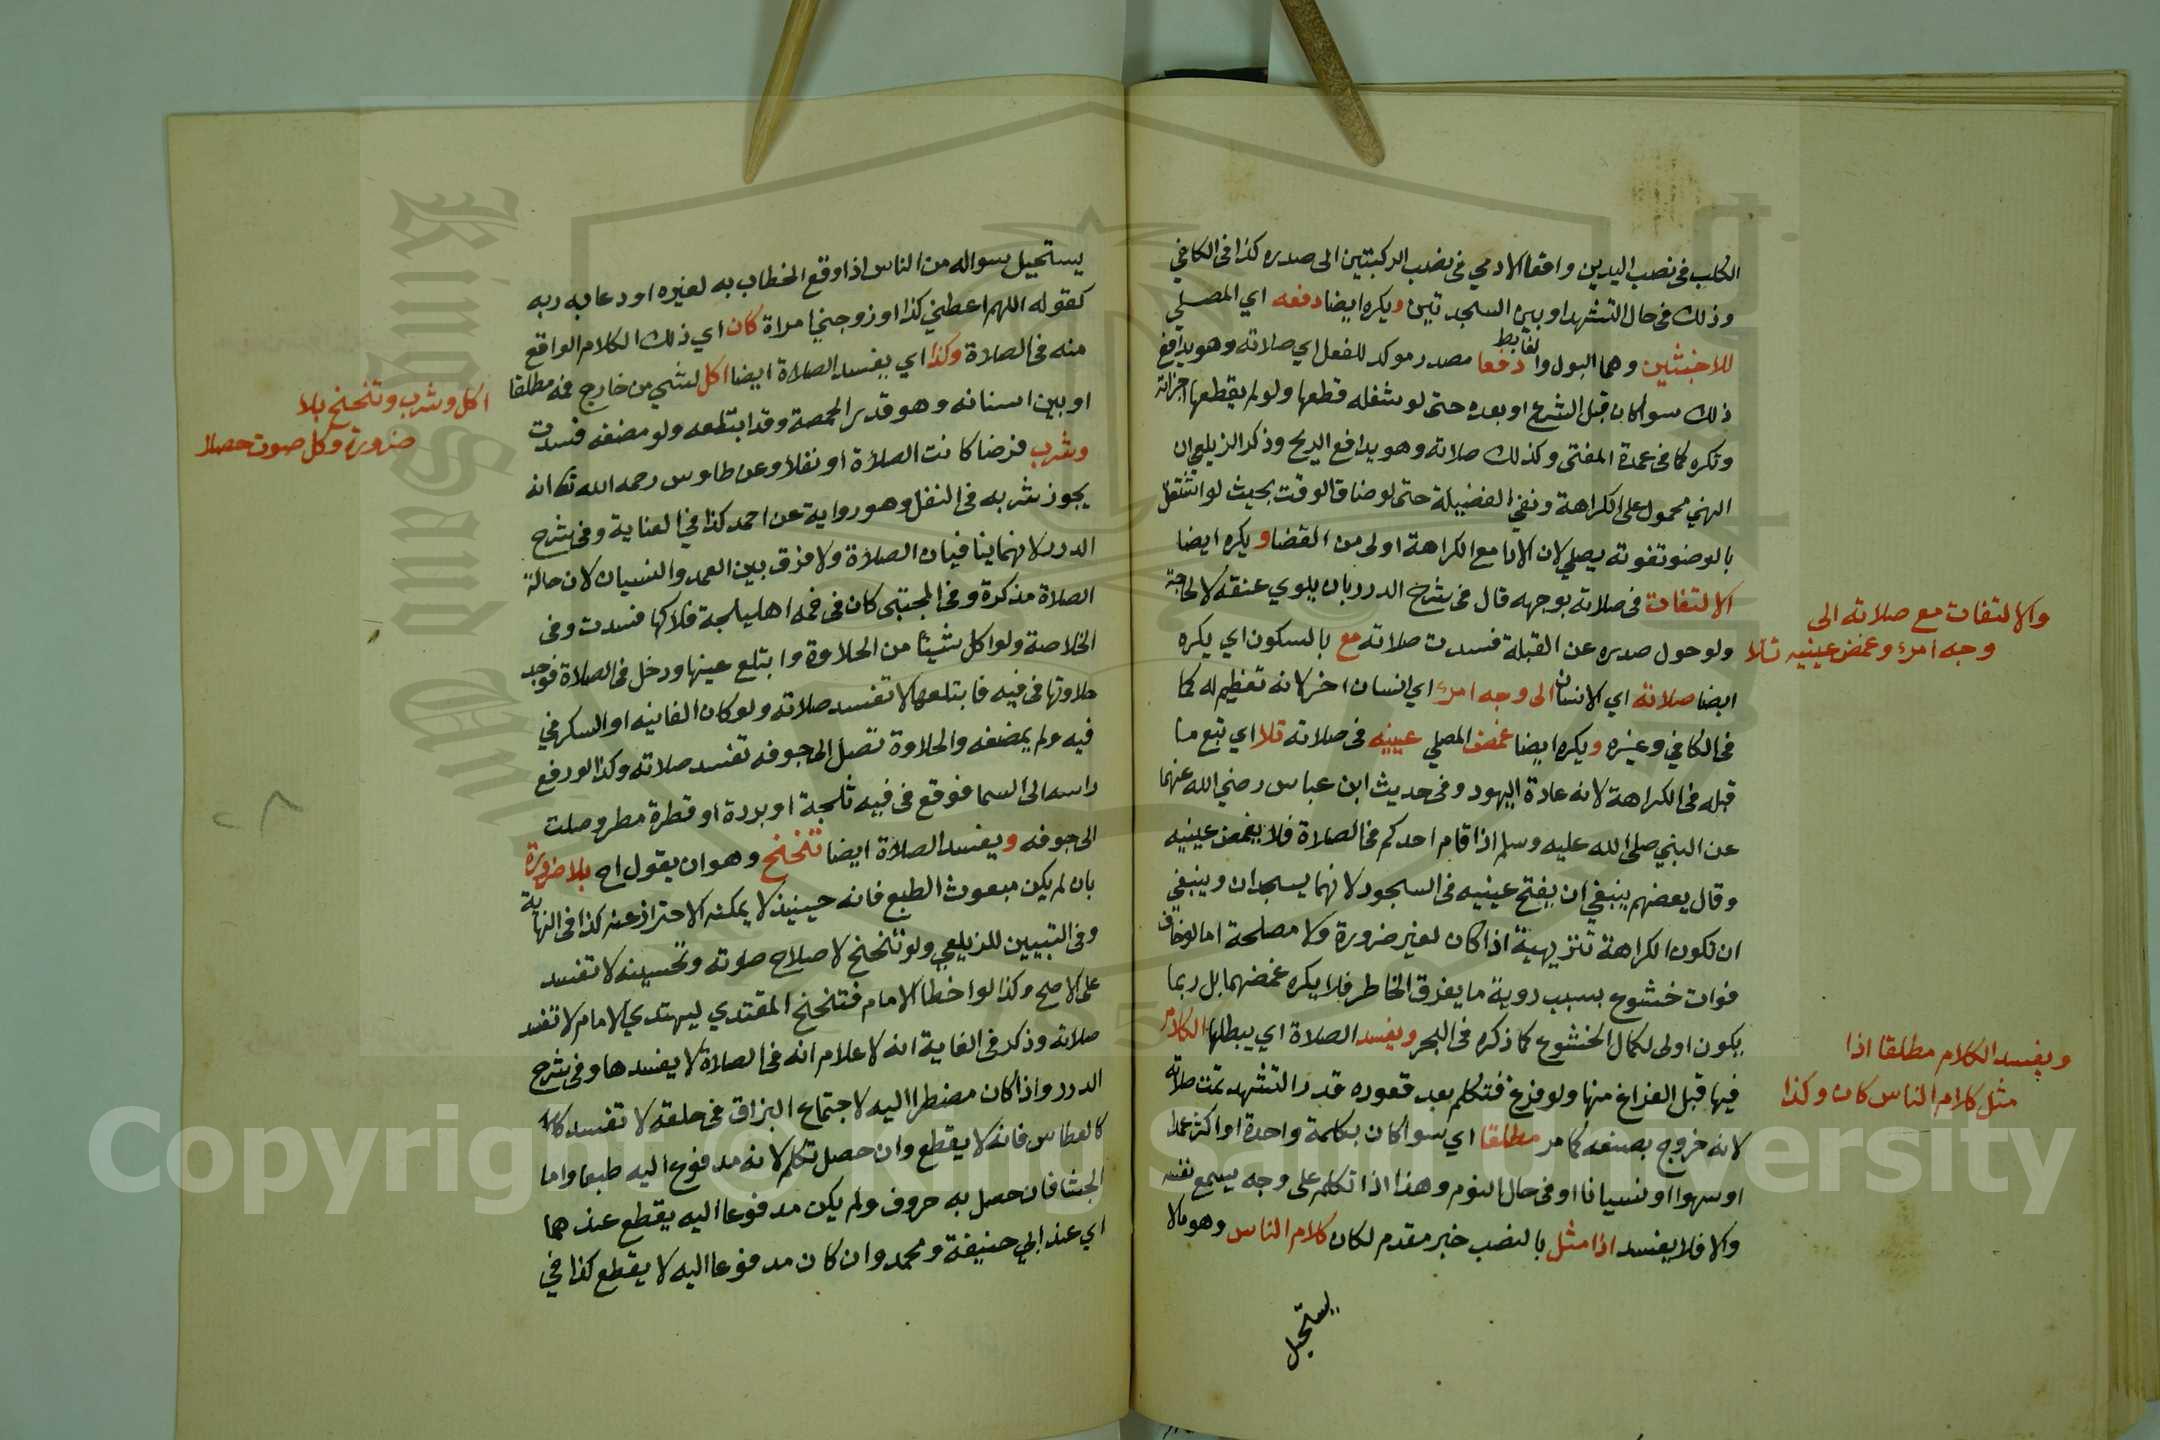 الكلب في نصب اليدين واقعا الادمي في نصب الركبتين الى صدره كذا في الكافي
وذلك في حال التشهد او بين السجدتين ويكره ايضا دفعه اي المصلي
للاخبثين وهما البول والغايط دفعا مصدر موكد للفعل اي صلاته وهو يدافع
ذلك سوا كان قبل الشرع او بعده حتى لو شغله قطعها ولو لم يقطعها اجزاته
وتكره كما في عمدة المفتي وكذلك صلاته وهو يدافع الريح وذكر الزيلعي ان
النهي محمول على الكراهة ونفي الفضيلة حتى لو ضاق الوقت بحيث لو اشتغل
بالوضو تفوته يصلي لان الادا مع الكراهة اولى من القضا ويكره ايضا
الالتفات في صلاته بوجهه قال في شرح الدرر بان يلوي عنقه لا لحاجة
ولو حول صدره عن القبلة فسدت صلاته مع بالسكون اي يكره
ايضا صلاته اي الانسان الى وجه امرء اي انسان اخر لانه تعظيم له كما
في الكافي وغيره ويكره ايضا غمض المصلي عينيه في صلاته تلا اي تبع ما
قبله في الكراهة لانه عادة اليهود وفي حديث ابن عباس رضي الله عنهما
عن النبي صلى الله عليه وسلم اذا قام احدكم في الصلاة فلا يغمض عينيه
وقال بعضهم ينبغي ان يفتح عينيه في السجود لانهما يسجدان وينبغي
ان تكون الكراهة تنزيهية اذا كان لغير ضرورة ولا مصلحة اما لو خاف
فوات خشوع بسبب روية ما يفرق الخاطر فلا يكره غمضهما بل ربما
يكون اولى لكمال الخشوع كما ذكره في البحر ويفسد الصلاة اي يبطلها الكلام
فيها قبل الفراغ منها ولو فرغ فتكلم بعد قعوده قدر التشهد تمت صلاته
لانه خروج بصنعه كما مر مطلقا اي سوا كان بكلمة واحدة او اكثر عمدا
او سهوا او نسيانا او في حال النوم وهذا اذا تكلم على وجه يسمع نفسه
والا فلا يفسد اذا مثل بالنصب خبر مقدم لكان كلام الناس وهو مالا
يستحيل
والالتفات مع صلاته الى
وجه امرء وغمض عينيه تلا
ويفسد الكلام مطلقا اذا
مثل كلام الناس كان وكذا
يستحيل سواله من الناس اذا وقع الخطاب به لغيره او دعا به ربه
كقوله اللهم اعطني كذا او زوجني امراة كان اي ذلك الكلام الواقع
منه في الصلاة وكذا اي يفسد الصلاة ايضا اكل لشي من خارج فمه مطلقا
او بين اسنانه وهو قدر الحمصة وقد ابتلعه ولو مضغه فسدت
وشرب فرضا كانت الصلاة او نفلا وعن طاوس رحمه الله تعا انه
يجوز شربه في النفل وهو رواية عن احمد كذا في العناية وفي شرح
الدرر لانهما ينافيان الصلاة ولا فرق بين العمد والنسيان لان حالة
الصلاة مذكرة وفي المجتبى كان في فمه اهليلجة فلاكها فسدت وفي
الخلاصة ولو اكل شيئا من الحلاوة وابتلع عينها ودخل في الصلاة فوجد
حلاوتها في فيه فابتلعها لا تفسد صلاته ولو كان الفانيه او السكر في
فيه ولم يمضغه والحلاوة تصل الى جوفه تفسد صلاته وكذا لو رفع
راسه الى السما فوقع في فيه ثلجة او بردة او قطرة مطر وصلت
الى جوفه ويفسد الصلاة ايضا تنحنح وهو ان يقول اح بلا ضرورة
بان لم يكن مبعوث الطبع فانه حينيذ لا يمكنه الاحتراز عنه كذا في النهاية
وفي التبيين للزيلعي ولو تنحنح لاصلاح صوته وتحسينه لا تفسد
على الاصح وكذا لو اخطا الامام فتنحنح المقتدي ليهتدي الامام لا تفسد
صلاته وذكر في الغاية انه لاعلام انه في الصلاة لا يفسدها وفي شرح
الدرر واذا كان مضطرا اليه لاجتماع البزاق في حلقه لا تفسد
كالعطاس فانه لا يقطع وان حصل تكلم لانه مدفوع اليه طبعا واما
الجشا فان حصل به حروف ولم يكن مدفوعا اليه يقطع عندهما
اي عند ابي حنيفة ومحمد وان كان مدفوعا اليه لا يقطع كذا في
اكل وشرب وتنحنح بلا
ضرورة وكل صوت حصلا
King Saud University
Copyright © King Saud University